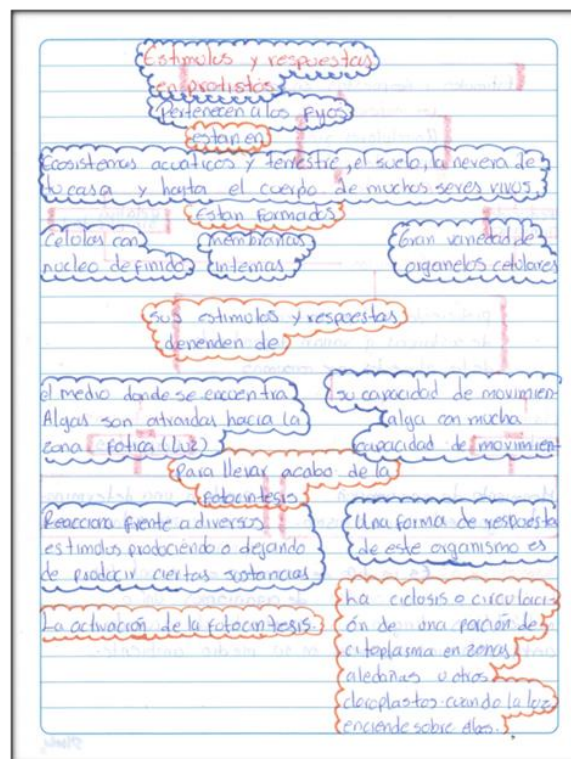 Estimulos y respuestas
en protistos
Pertenecen a los
estan en
Ecosistemas acuaticos y terrestre, el suelo, la nevera de
tu casa y hasta el cuerpo de muchos seres vivos
Estan formados
Celulas con
nucleo definido
membranas
internas
Gran variedad de
organelos celulares
Sus estimulos y respuestas
denenden de
el medio donde se encuentra
Algas son atraidas hacia la
zona fotica (Luz)
su capacidad de movimien-
alga con mucha
capacidad de movimien-
Para llevar acabo de la
fotocintesis
Reacciona frente a diversos
estimulos produciendo o dejando
de producir ciertas sustancias
Una forma de respuesta
de este organismo es
La activación de la fotocintesis.
La ciclosis o circulaci-
ón de una porción de
citoplasma en zonas
aledañas u otros
cloroplastos cuando la luz
enciende sobre ellas.